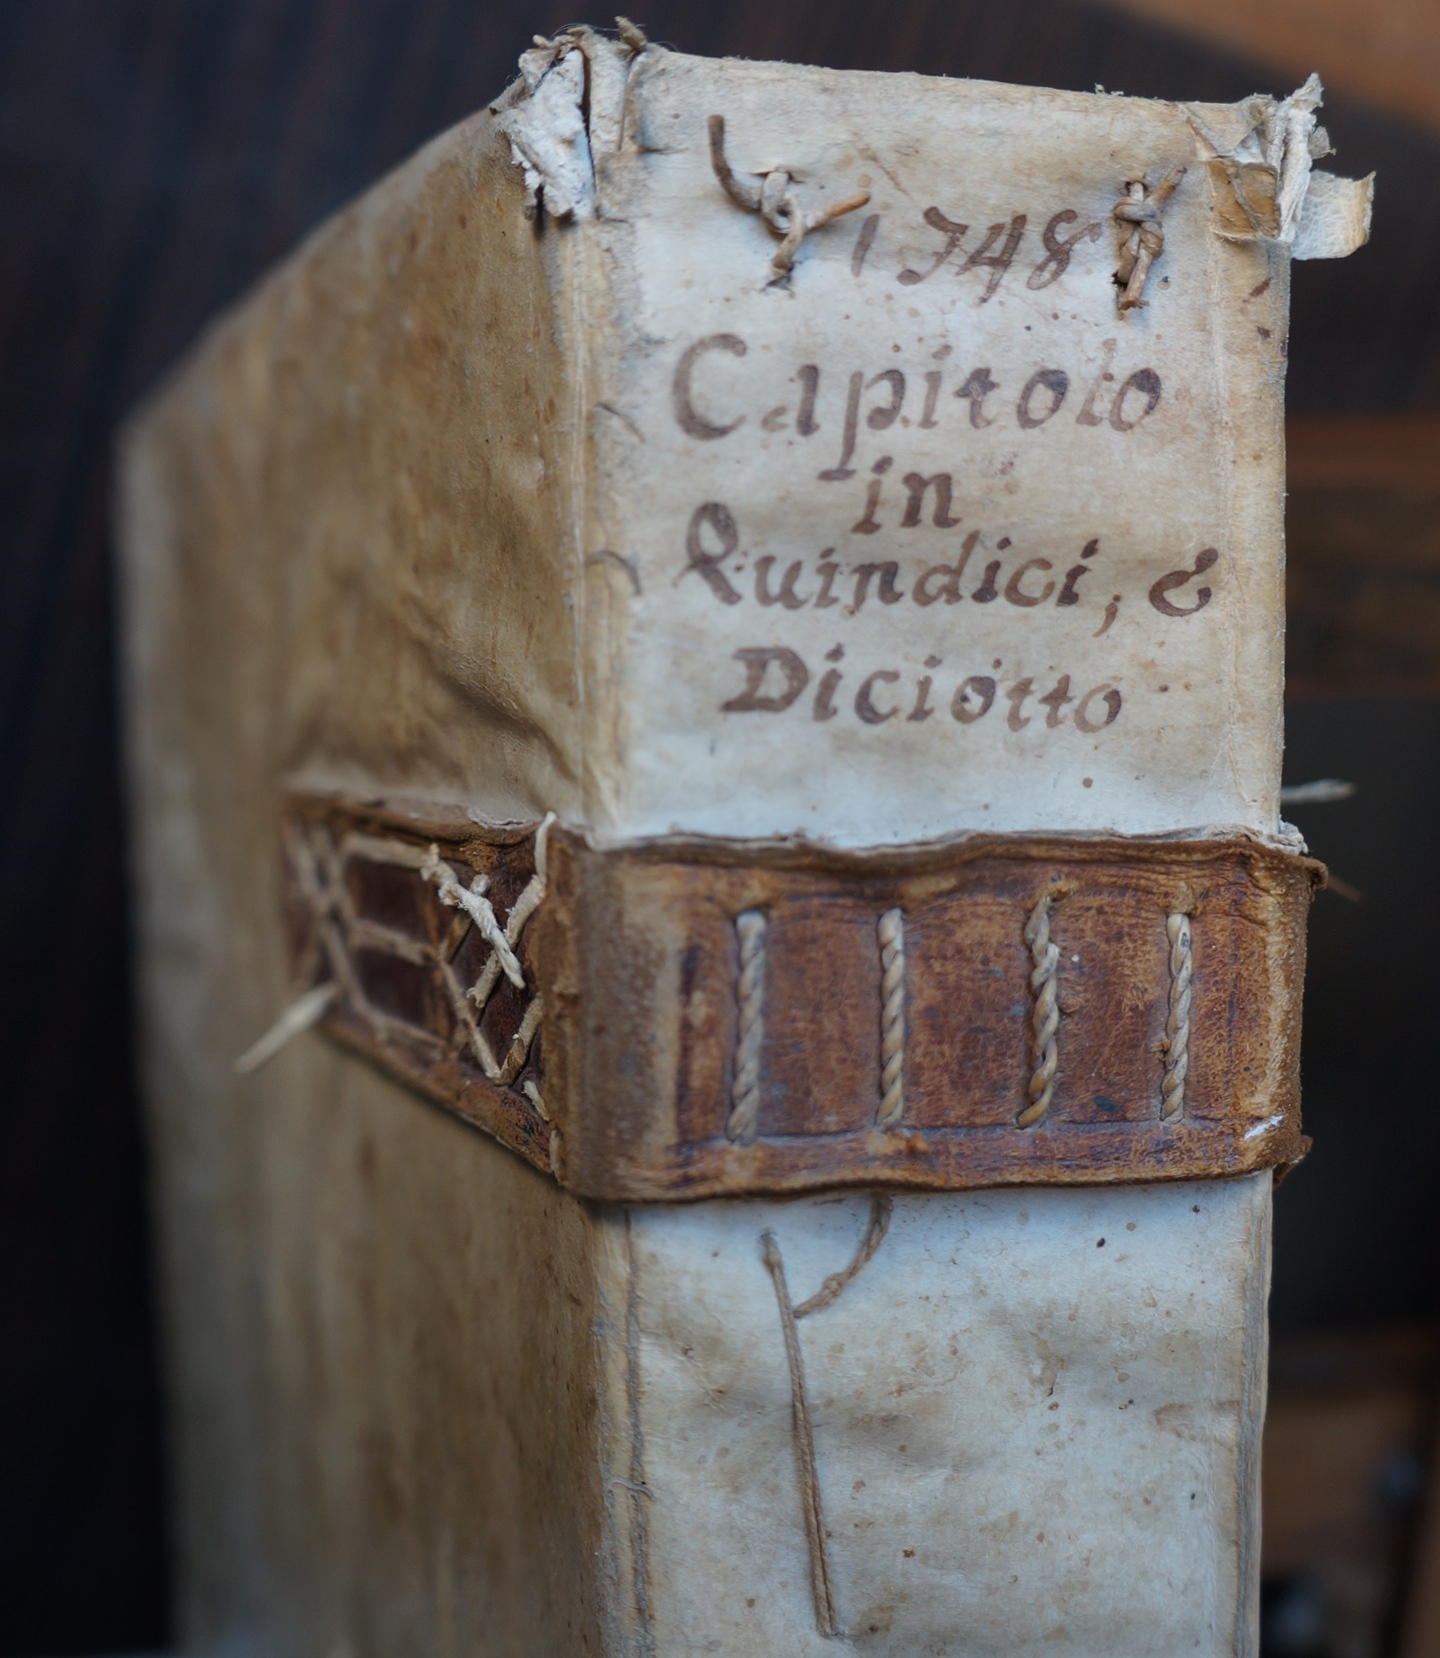 1748
Capitolo
in
Quindici, &
Diciotto